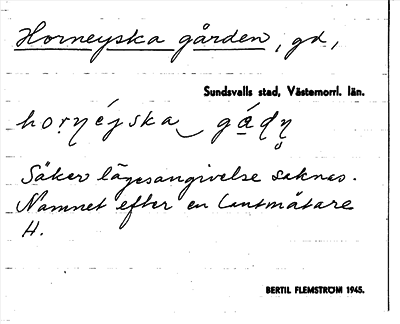 Horneyska gården, gd,
Sundsvalls stad, Västernorrl. län.
hoṛṇéjska gá̱dṇ
Säker lägesangivelse saknas.
Namnet efter en lantmätare
H.
BERTIL FLEMSTRÖM 1945.